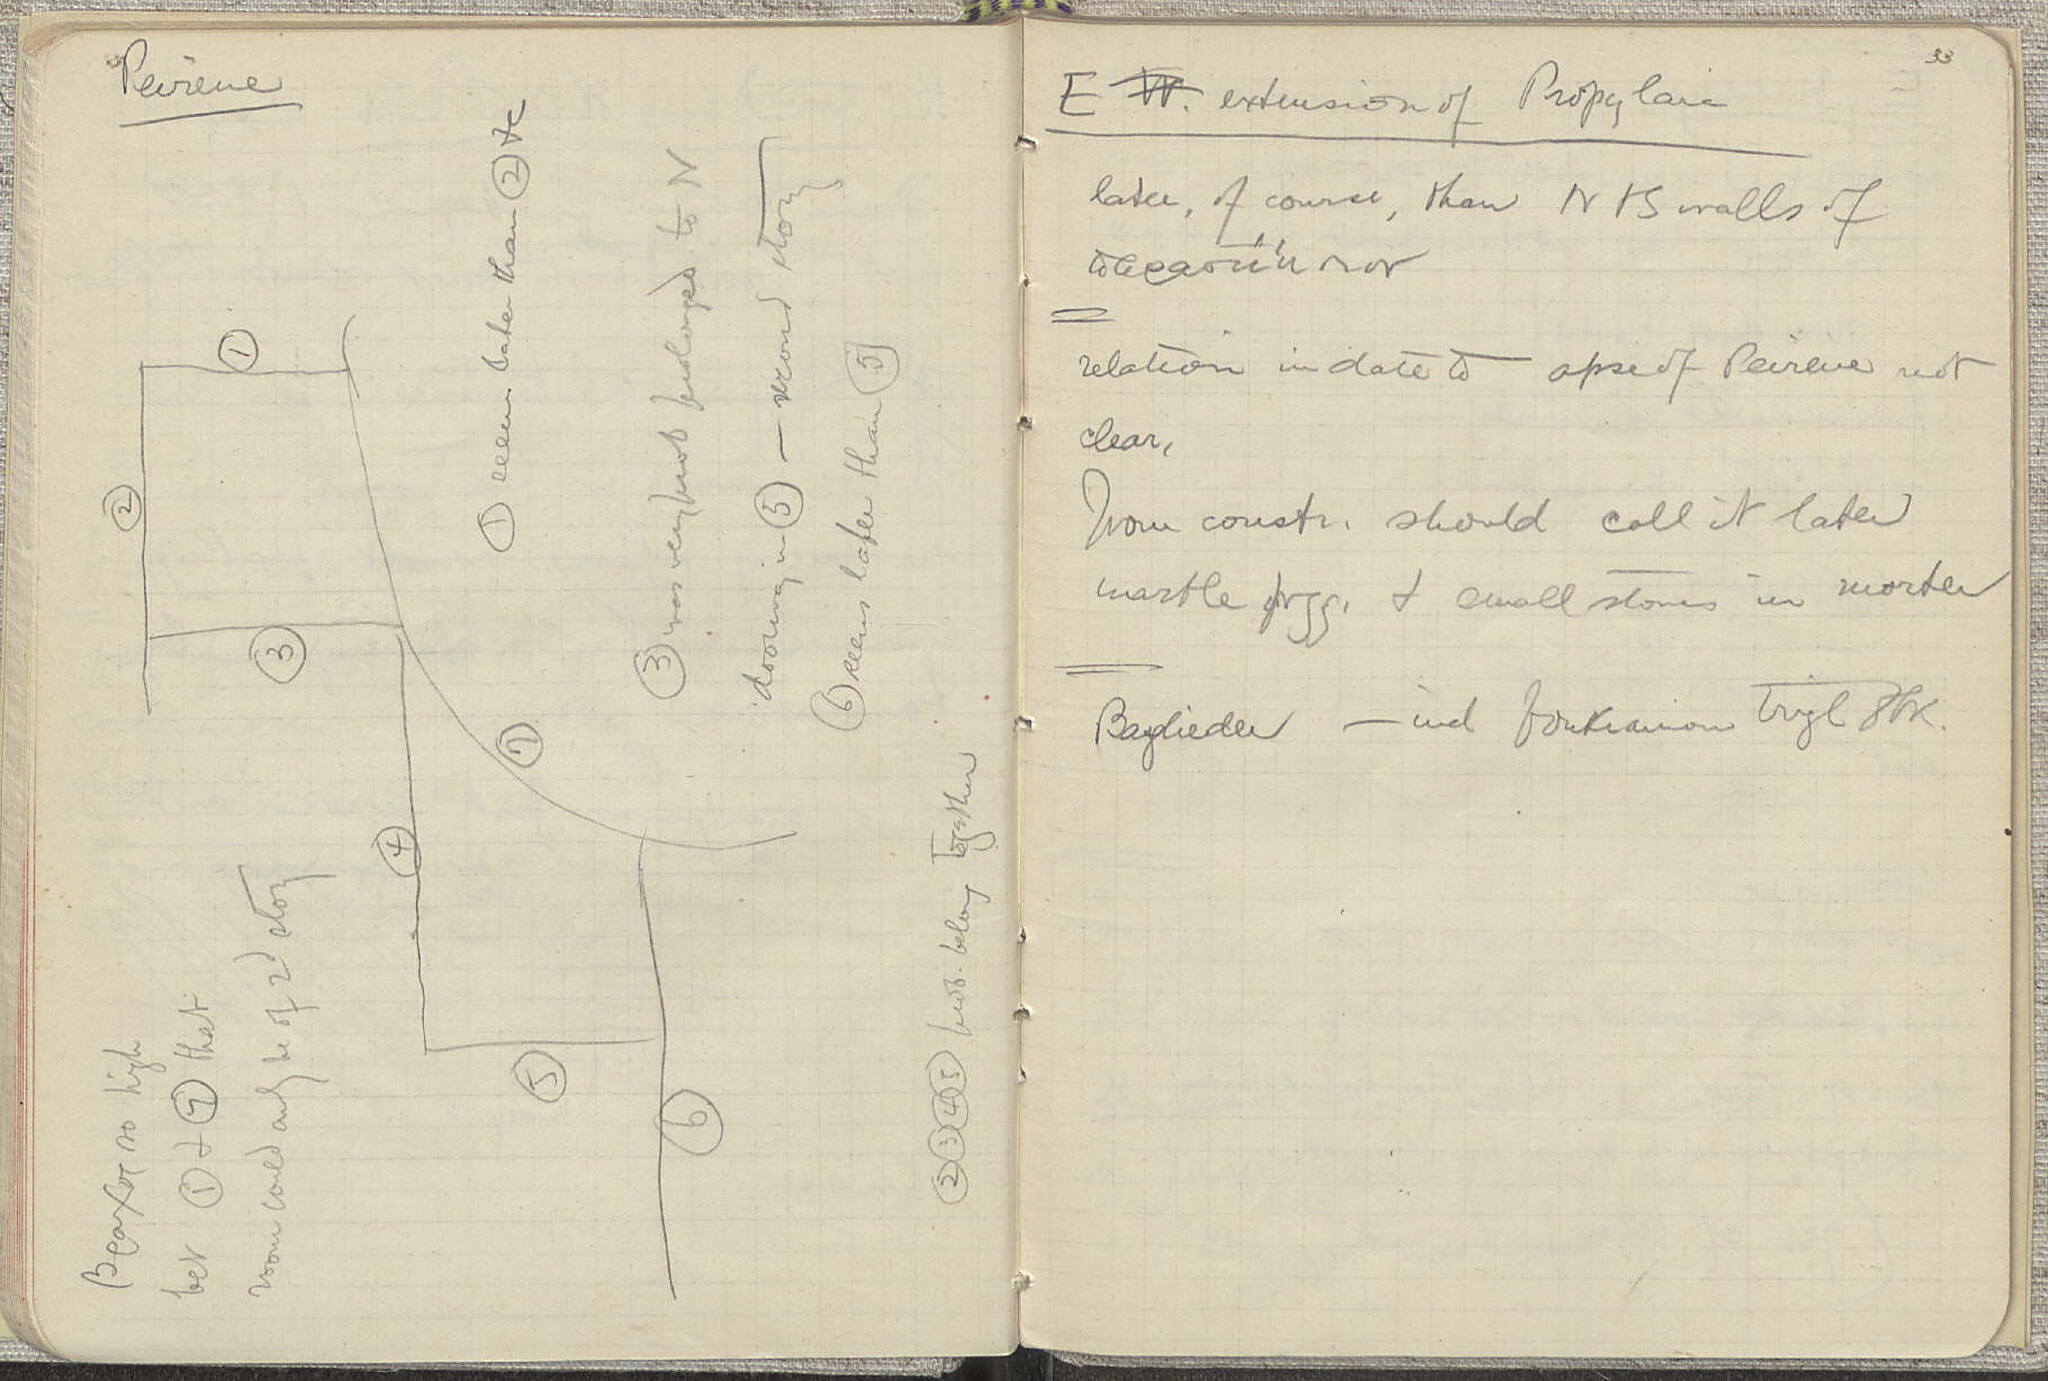 Peirene
① seems later than ② etc
③ was very prob prolonged to N
doorway in ⑤ — second story
⑥ seems later than ⑤
②③④⑤ prob. belong together
Βράχος so high
bet ① + ④ that
room could only be of 2d story
①
②
③
④
⑤
⑥
⑦
33
E W. extension of Propylaia
later, of course, than N + S walls of
relation in date to apse of Peirene not
clear,
From constr. should call it later
marble frgg. + small stones in mortar
— ind